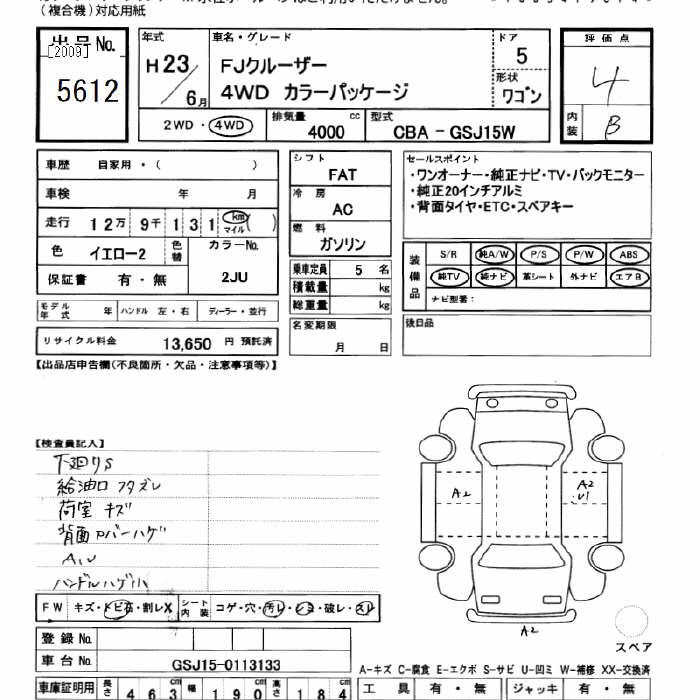 (複合機)対応用紙
出品 No.
[2009]
5612
年式
H 23 / 6 月
車名・グレード
FJクルーザー
4WD カラーパッケージ
ドア
5
形状
ワゴン
評価点
4
内装
B
2WD・4WD
排気量
4000 cc
型式
CBA - GSJ15W
車歴 自家用・( )
車検 年 月
走行 12万 9千 1 3 1 km マイル ( )
色 イエロー2 色替
カラーNo.
2JU
保証書 有・無
モデル年式 年 ハンドル 左・右 ディーラー・並行
リサイクル料金 13,650 円 預託済
シフト
FAT
冷房
AC
燃料
ガソリン
乗車定員 5 名
積載量 kg
総重量 kg
名変期限
月 日
セールスポイント
・ワンオーナー・純正ナビ・TV・バックモニター
・純正20インチアルミ
・背面タイヤ・ETC・スペアキー
装備品
S/R 純A/W P/S P/W ABS
純TV 純ナビ 革シート 外ナビ エアB
ナビ型番:
後日品
【出品店申告欄(不良箇所・欠品・注意事項等)】
【検査員記入】
下廻りS
給油口 フタズレ
荷室 キズ
背面カバーハゲ
ハンドルハゲ小
A2
A2
U1
A2
スペア
FW キズ・トビ石・割レX
シート内装 コゲ・穴・汚レ・シミ・破レ・スレ
登録 No.
車台 No. GSJ15-0113133
A-キズ C-腐食 E-エクボ S-サビ U-凹ミ W-補修 XX-交換済
車庫証明用 長さ 463 cm 幅 190 cm 高さ 184 cm
工具 有・無 ジャッキ 有・無